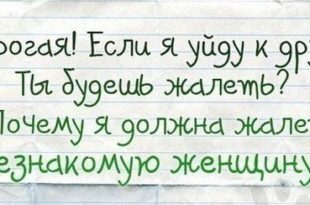 орогая! Если я уйду к дру
Ты будешь жалеть?
Почему я должна жалет
езнакомую женщину